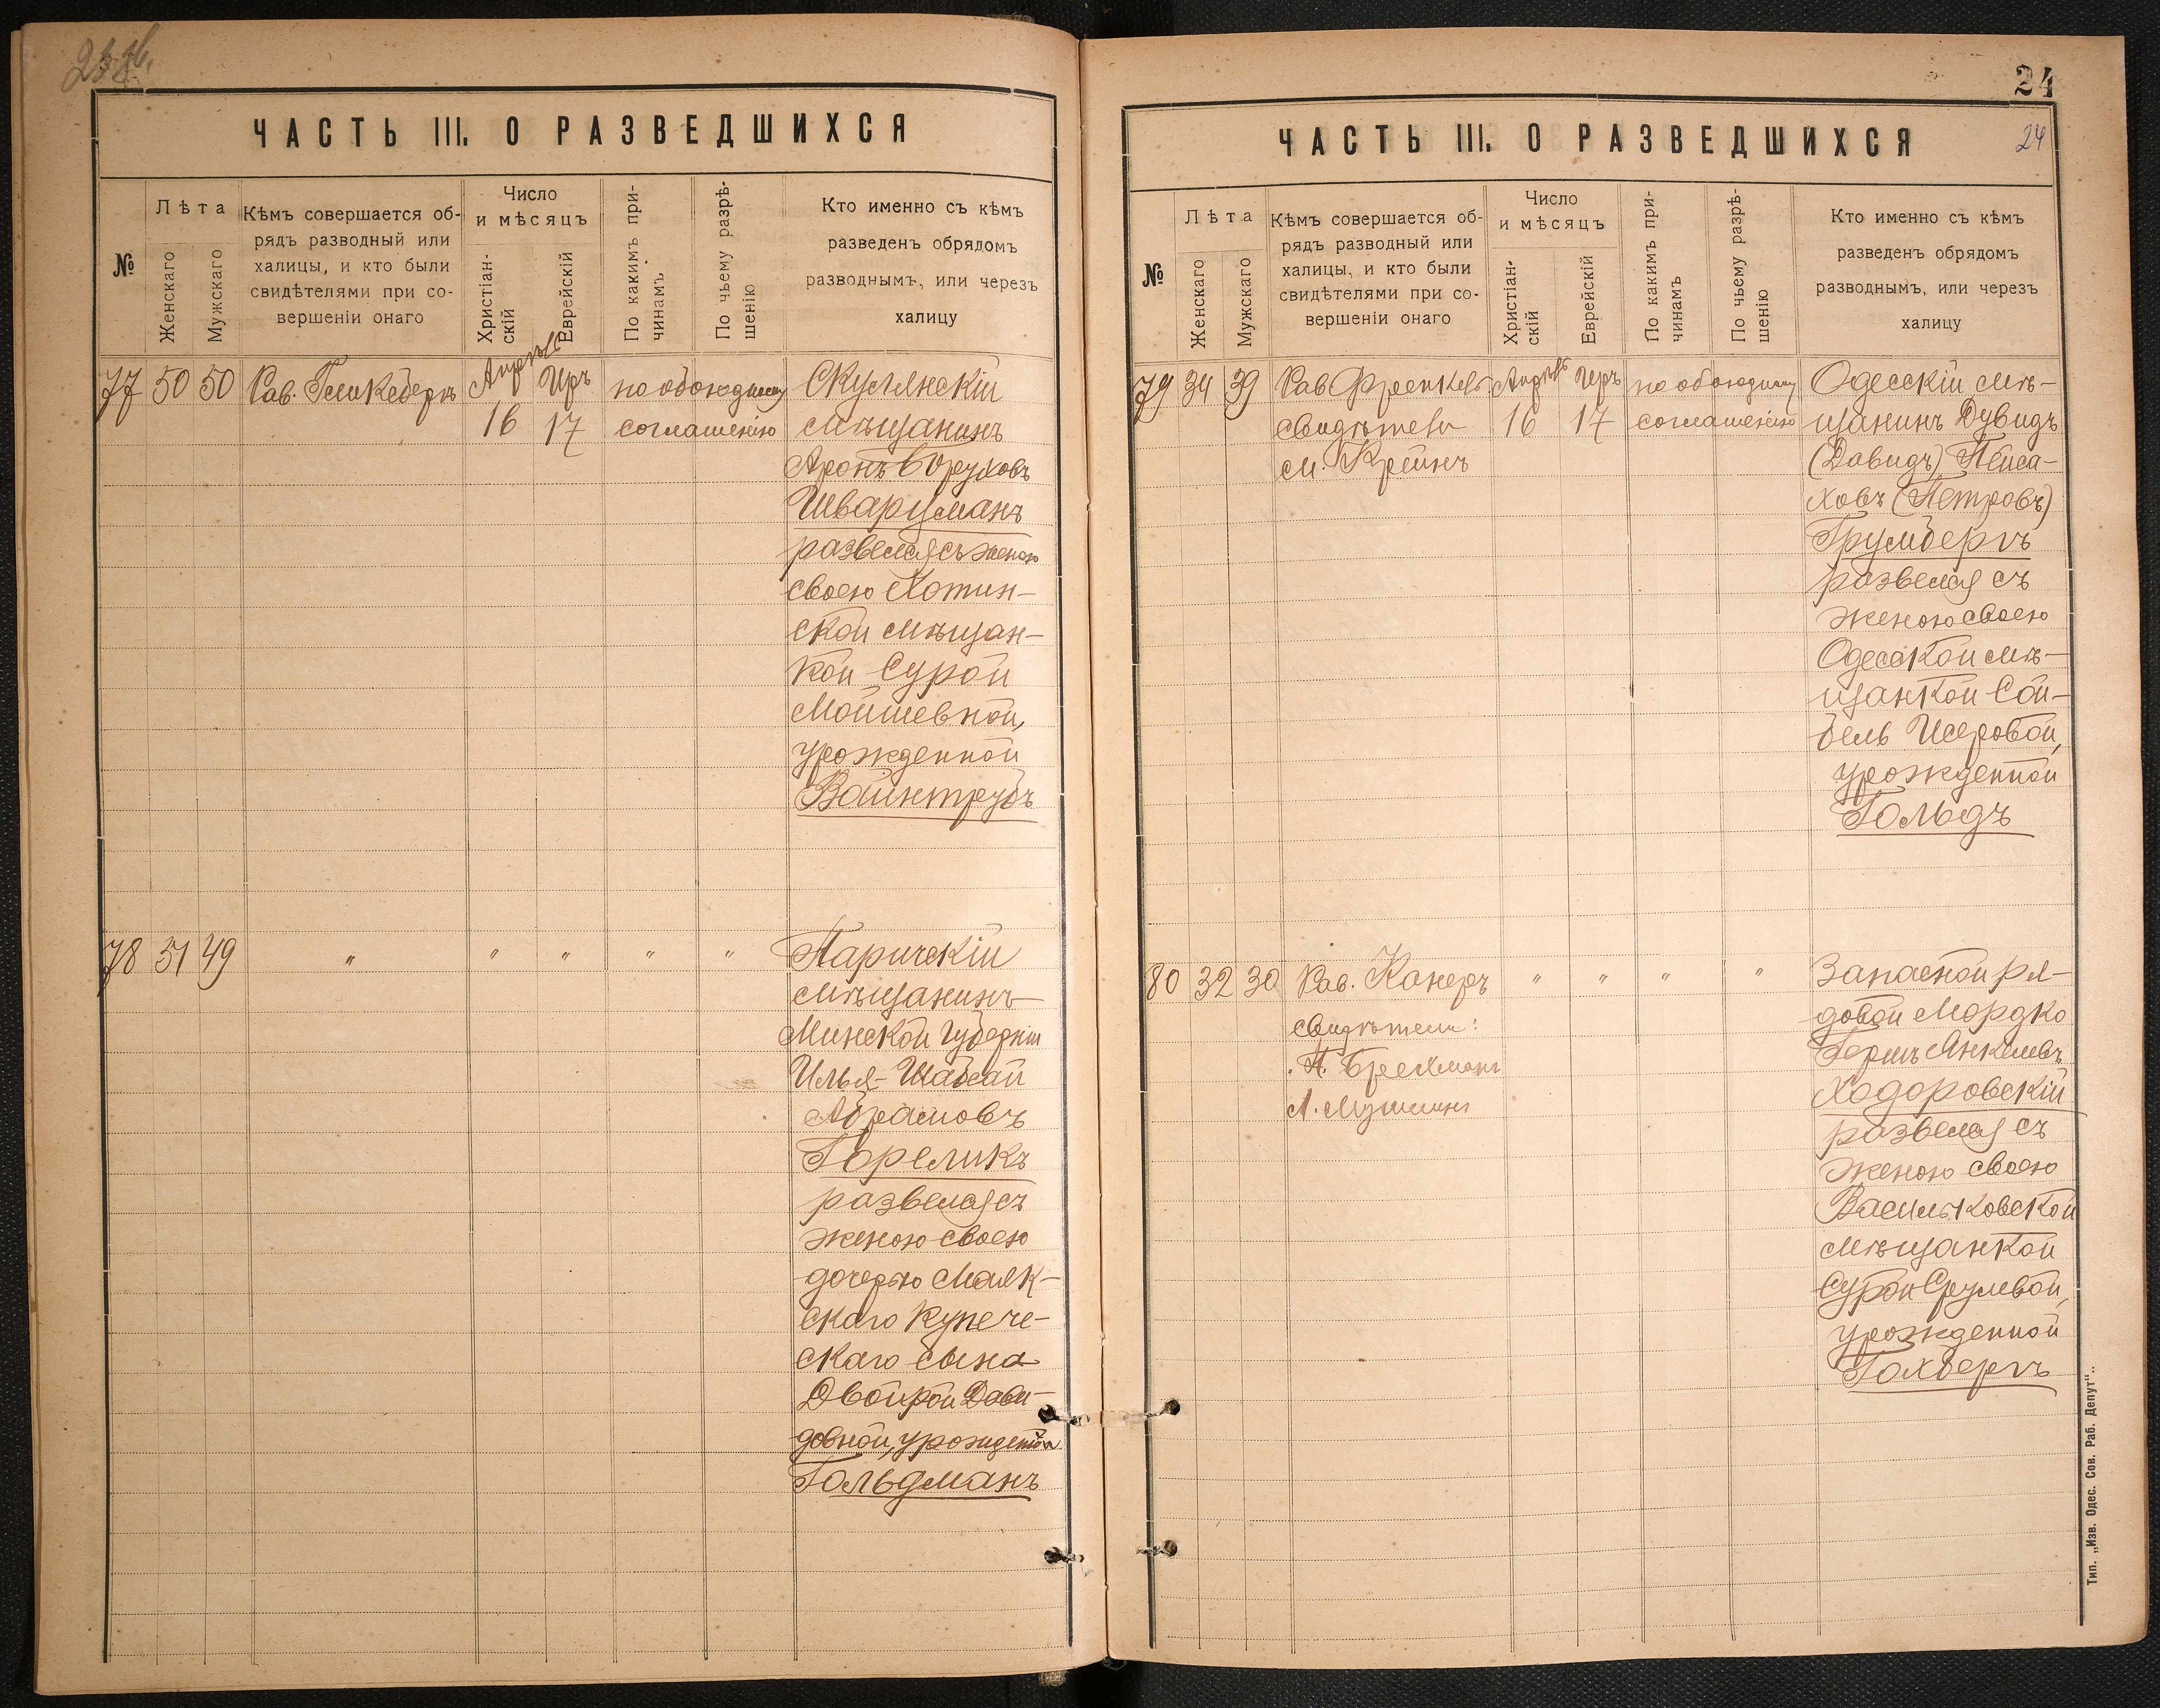 ЧАСТЬ III. О РАЗВЕДШИХСЯ
№
Лѣта
Женскаго
Мужскаго
Кѣмъ совершается об-
рядъ разводный или
халицы, и кто были
свидѣтелями при со-
вершеніи онаго
Число
и мѣсяцъ
Христіан-
скій
Еврейскій
По какимъ при-
чинамъ
По чьему разрѣ-
шенію
Кто именно съ кѣмъ
разведенъ обрядомъ
разводнымъ, или черезъ
халицу
77 50 50 Рав. Апрѣль Iръ по обоюдному
16 17 соглашенію
Скулянскій
мѣщанинъ
Аронъ Боруховъ
Шварцманъ
развелся съ женою
своею Хотин-
ской мѣщан-
кой Сурой
Мойшевной,
урожденной
Вайнтрубъ
78 51 49 " " " " "
Паричскій
мѣщанинъ
Минской Губерніи
Илья-Шабсай
Абрамовъ
Гореликъ
развелся съ
женою своею
дочерью Маяк-
скаго купече-
скаго сына
Двойрой Дави-
довной, урожденной
Гольдманъ
24
ЧАСТЬ III. О РАЗВЕДШИХСЯ
24
№
Лѣта
Женскаго
Мужскаго
Кѣмъ совершается об-
рядъ разводный или
халицы, и кто были
свидѣтелями при со-
вершеніи онаго
Число
и мѣсяцъ
Христіан-
скій
Еврейскій
По какимъ при-
чинамъ
По чьему разрѣ-
шенію
Кто именно съ кѣмъ
разведенъ обрядомъ
разводнымъ, или черезъ
халицу
79 34 39 Рав Френкель Апрѣль Iръ по обоюдному
свидѣтели 16 17 соглашенію
М. Крейнъ
Одесскій мѣ-
щанинъ Дувидъ
(Давидъ) Пейса-
ховъ (Петровъ)
Грумбергъ
развелся съ
женою своею
Одесской мѣ-
щанкой Сой-
бель Исеровой,
урожденной
Гольдъ
80 32 30 Рав. Канеръ " " " "
свидѣтели:
А. Брехманъ
Запасной ря-
довой Мордко
Гершъ Янкелевъ
Ходоровскій
развелся съ
женою своею
Васильковской
мѣщанкой
Сурой Срулевой,
урожденной
Гохбергъ
Тип. „Изв. Одес. Сов. Раб. Депут".